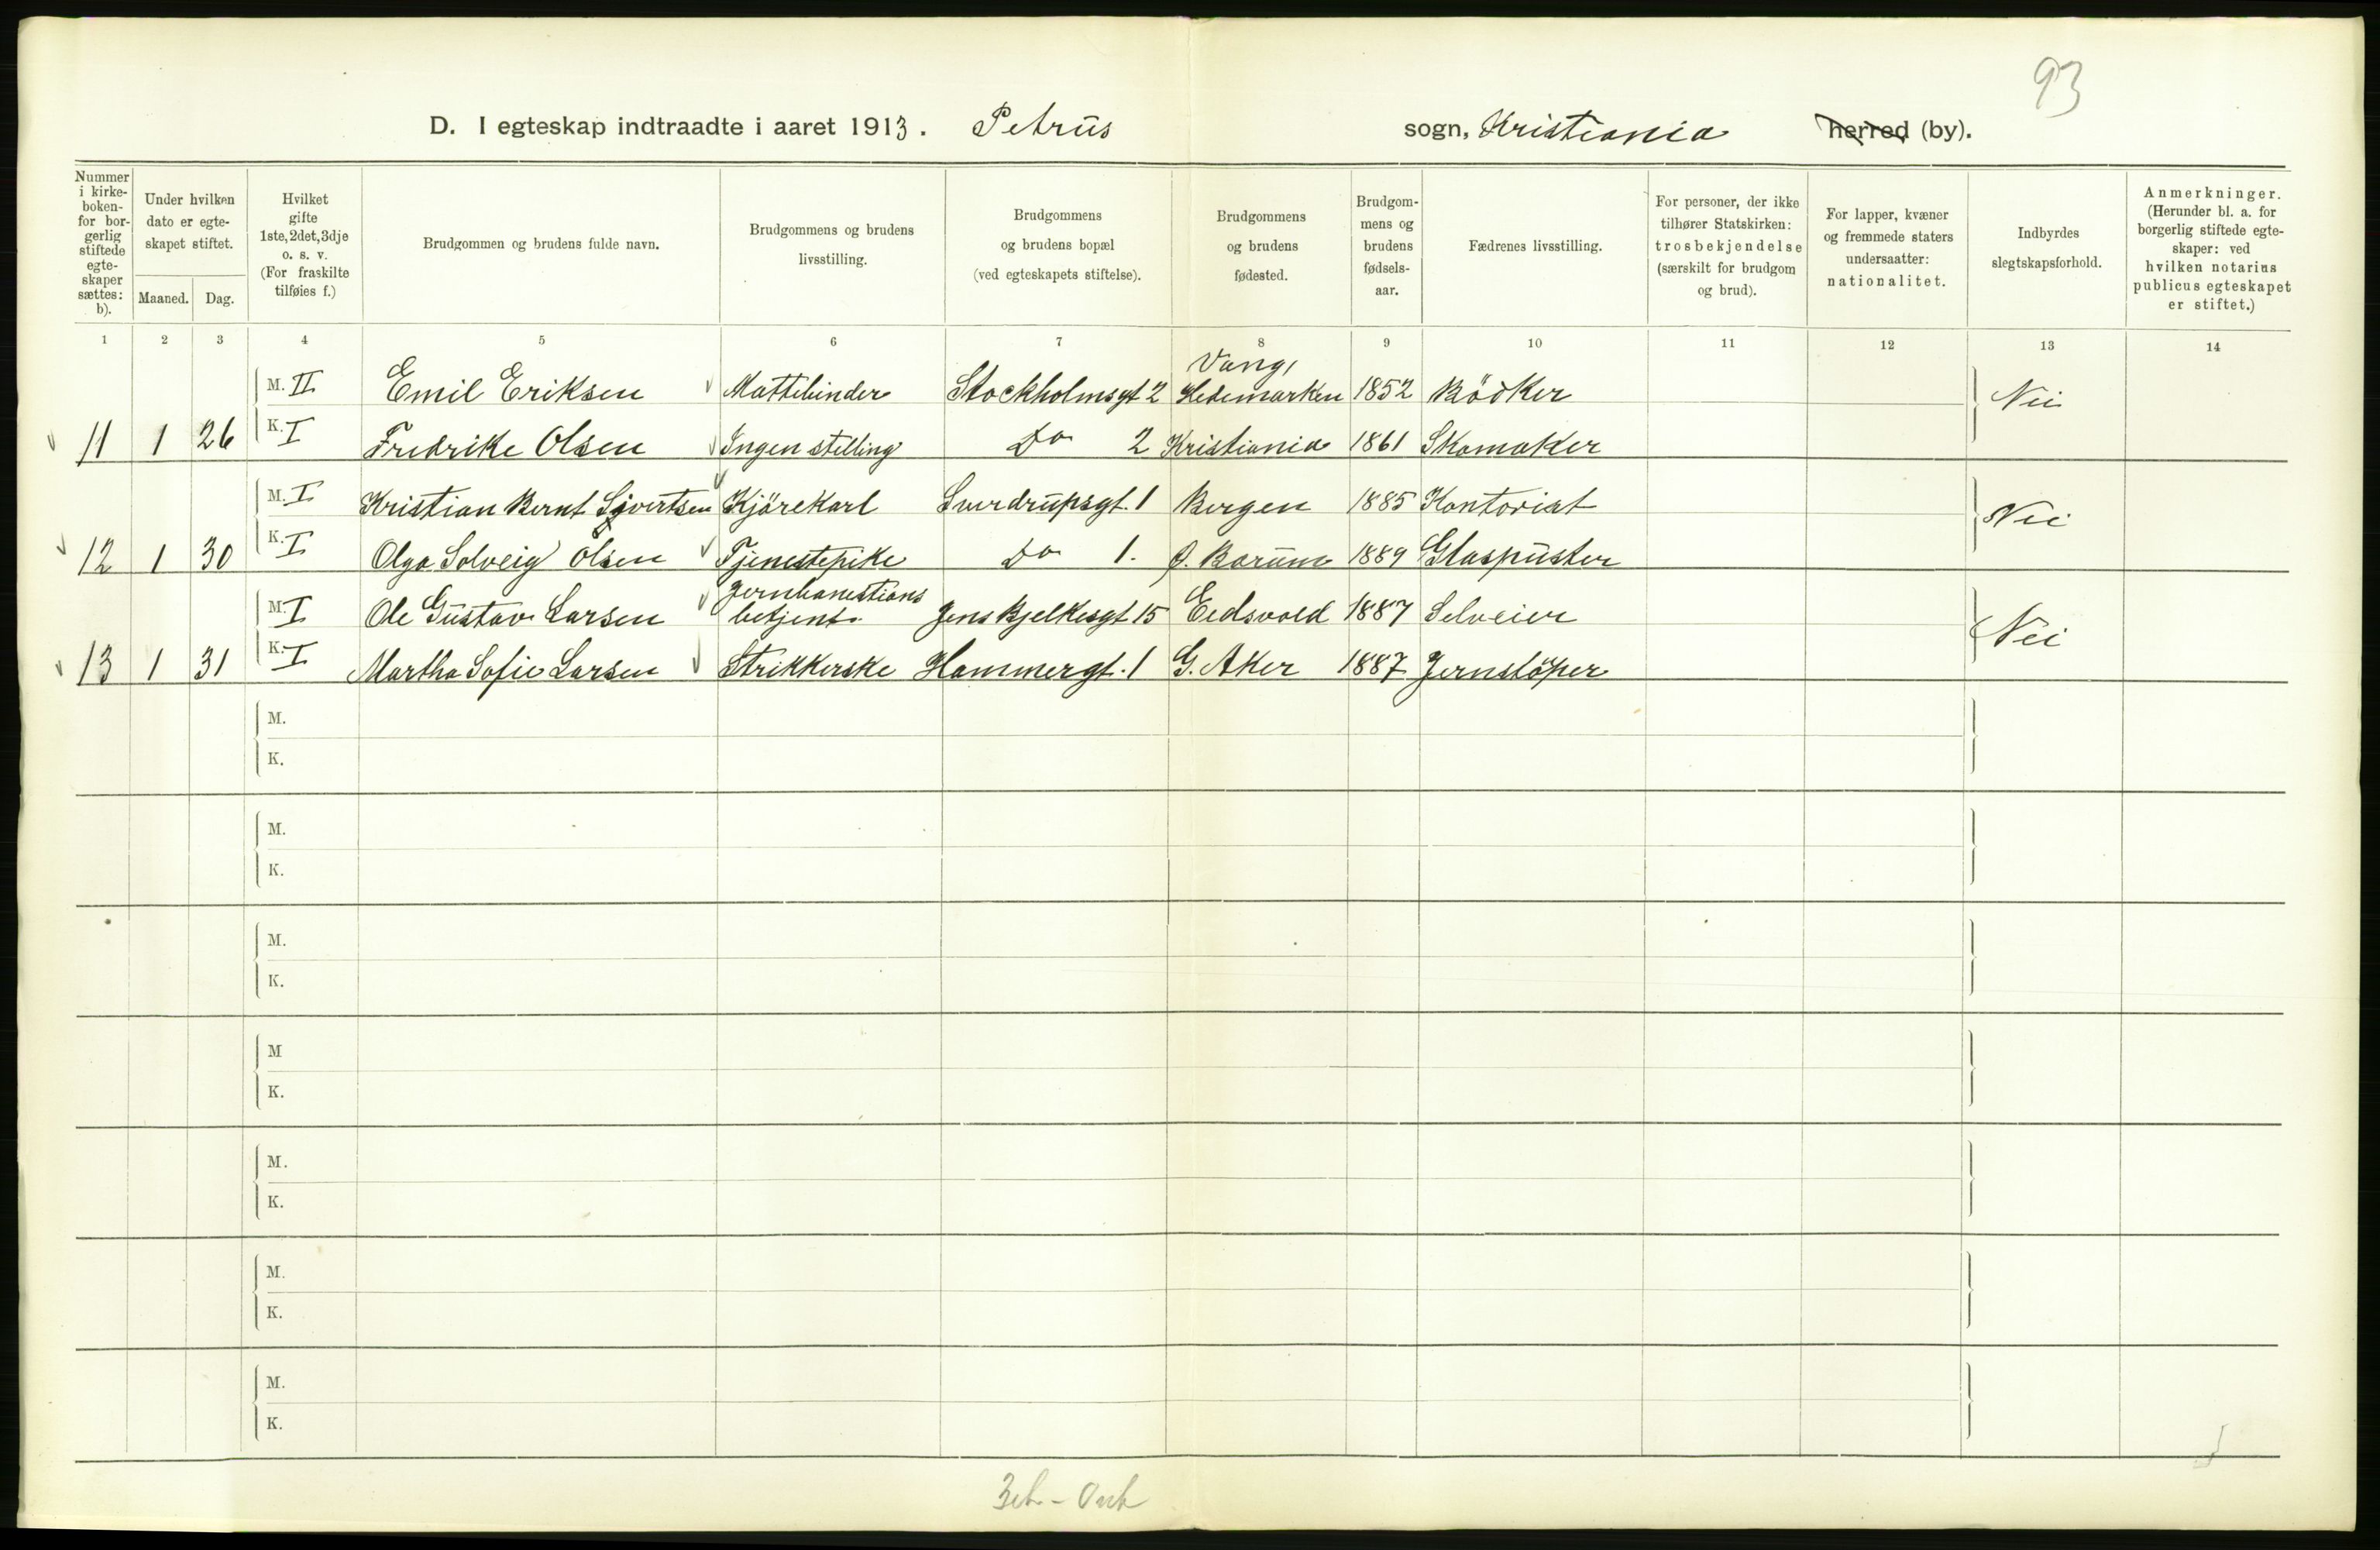 93
D. I egteskap indtraadte i aaret 1913. Petrus sogn, Kristiania herred (by).
Nummer i kirkeboken for borgerlig stiftede egteskaper sættes: b).
Under hvilken dato er egteskapet stiftet.
Maaned. Dag.
Hvilket gifte 1ste, 2det, 3dje o. s. v. (For fraskilte tilføies f.)
Brudgommen og brudens fulde navn.
Brudgommens og brudens livsstilling.
Brudgommens og brudens bopæl (ved egteskapets stiftelse).
Brudgommens og brudens fødested.
Brudgommens og brudens fødselsaar.
Fædrenes livsstilling.
For personer, der ikke tilhører Statskirken: trosbekjendelse (særskilt for brudgom og brud).
For lapper, kvæner og fremmede staters undersaatter: nationalitet.
Indbyrdes slegtskapsforhold.
Anmerkninger. (Herunder bl. a. for borgerlig stiftede egteskaper: ved hvilken notarius publicus egteskapet er stiftet.)
1 2 3 4 5 6 7 8 9 10 11 12 13 14
M. II Emil Eriksen Mattebinder Stockholmsgt 2 Vang, Hedemarken 1852 Bödker Nei
11 1 26 K. I Fredrike Olsen Ingen stilling Do 2 Kristiania 1861 Skomaker
M. I Kristian Bernt Sjvertsen Kjörekarl Sverdrupsgt. 1 Bergen 1885 Kontorist Nei
12 1 30 K. I Olga Solveig Olsen Tjenestepike Do 1. Ø. Bærum 1889 Glaspuster
M. I Ole Gustav Larsen Jernbanestions betjent. Jens Bjelkesgt 15 Eidsvold 1887 Selveier Nei
13 1 31 K. I Martha Sofie Larsen Strikkerske Hammergt. 1 G. Aker 1887 Jernstöper
M.
K.
M.
K.
M.
K.
M
K.
M.
K.
M.
K.
M.
K.